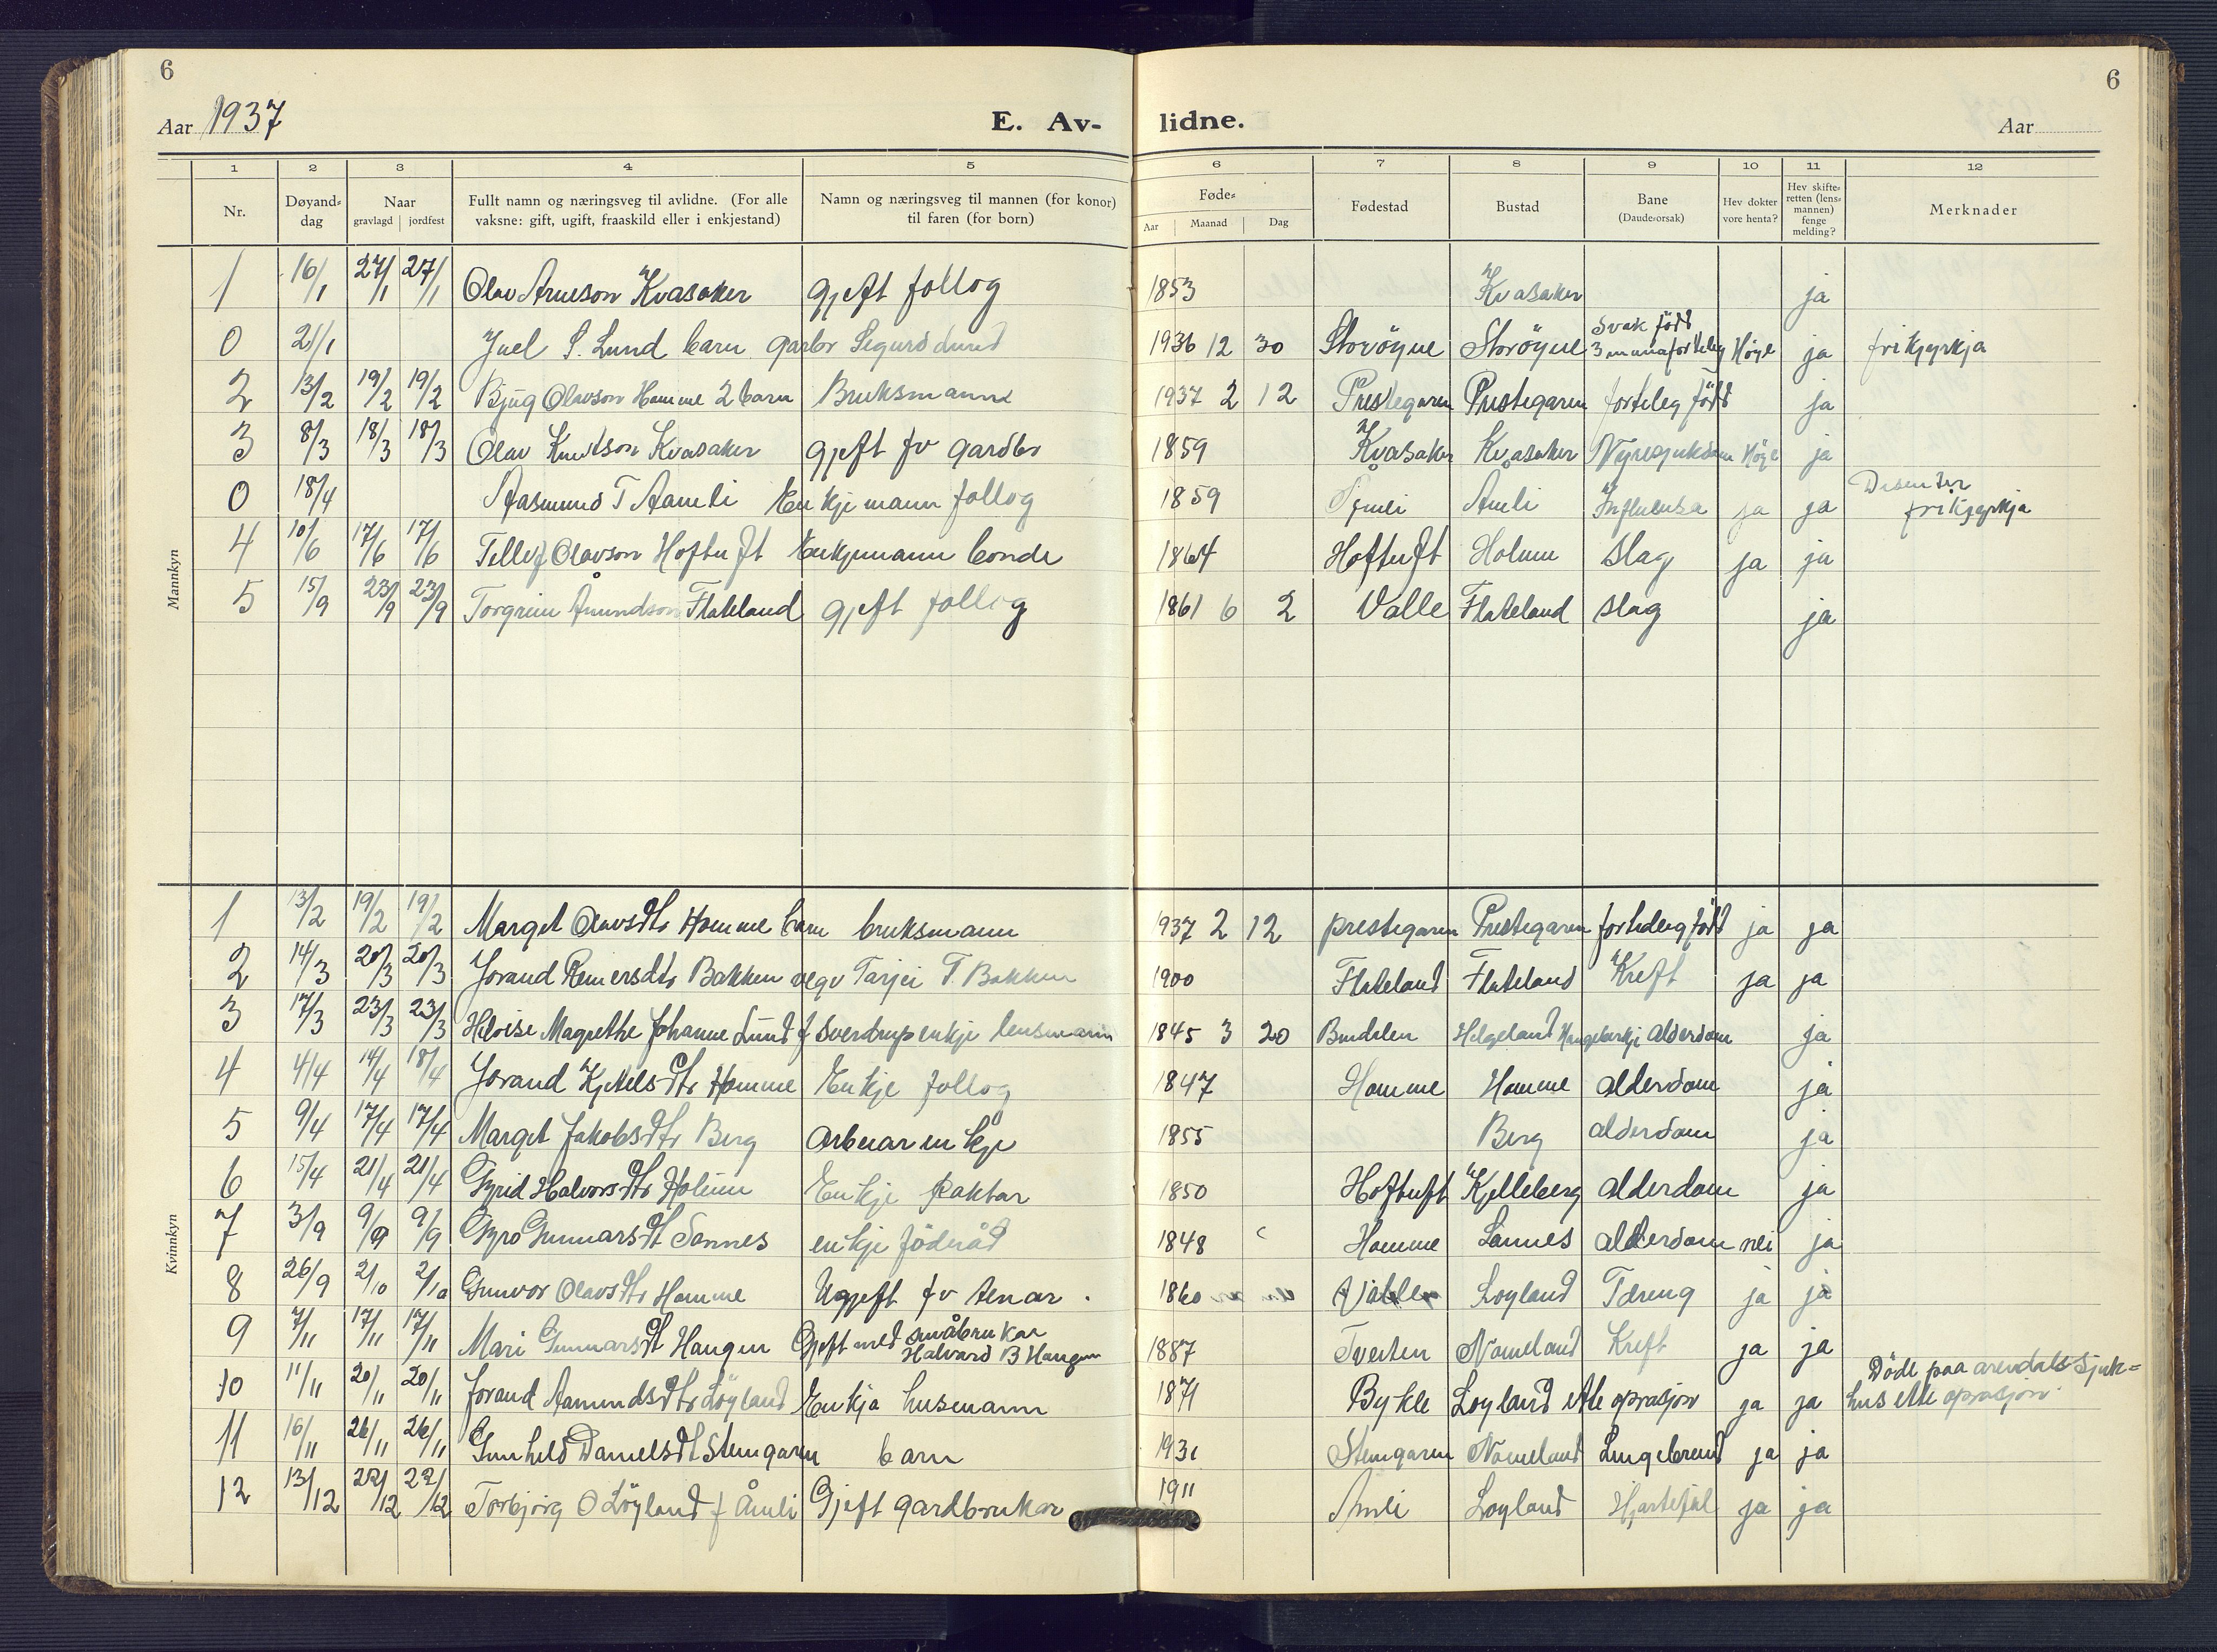 6
6
Aar 1937
E. Av- lidne.
Aar
1 2 3 4 5 6 7 8 9 10 11 12
Nr.
Døyand-
dag
Naar
gravlagd jordfest
Fullt namn og næringsveg til avlidne. (For alle
vaksne: gift, ugift, fraaskild eller i enkjestand)
Namn og næringsveg til mannen (for konor)
til faren (for born)
Føde-
Aar Maanad Dag
Fødestad
Bustad
Bane
(Daude-orsak)
Hev dokter
vore henta?
Hev skifte-
retten (lens-
mannen)
fenge
melding?
Merknader
Mannkyn
1 16/1 27/1 27/1 Olav Arneson Kvasaker gjeft follog 1853 Kvasaker ja
0 21/1 Juel S. Lund barn garbr Sigurd Lund 1936 12 30 Storöyne Störöyne Svak född 3 mnna forteleg Höye ja frikjyrkja
2 13/2 19/2 19/2 Bjug Olavson Homme 2 barn Bruksmann 1937 2 12 Prestegaren Prestegaren forteleg född ja
3 8/3 18/3 18/3 Olav Knutson Kvasaker gjeft fv gardbr 1859 Kvasaker Kvasaker Nyresjukdom Höye ja
0 18/4 Aasmund T Aamli Enkjemann follog 1859 Åmli Influensa ja ja Disenter frikjyrkja
4 10/6 17/6 17/6 Tellef Olavson Hoftuft Enkjemann bonde 1864 Hoftuft Holum slag ja ja
5 15/9 23/9 23/9 Torgrim Åmundson Flateland gjeft follog 1861 6 2 Valle Flateland slag ja
Kvinnkyn
1 13/2 19/2 19/2 Marget Olavsdtr Homme barn bruksmann 1937 2 12 prestegaren Prestegaren forteleg född ja ja
2 14/3 20/3 20/3 Jorand Reinersdtr Bakken vegv Tarjei T. Bakken 1900 Flateland Flateland Kreft ja ja
3 17/3 23/3 23/3 Heloise Magrethe Johanne Lund f Sverdrup enkje lensmann 1845 3 20 Bindalen Helgeland alderdom ja
4 4/4 14/4 18/4 Jorand Kjetelsdtr Homme Enkje follog 1847 Homme Homme alderdom ja
5 9/4 17/4 17/4 Marget Jakobsdtr Berg Arbeiar enkje 1855 Berg alderdom ja
6 15/4 21/4 21/4 Gyrid Halvorsdtr Holum Enkje faktar 1850 Hoftuft Kjelleberg alderdom ja
7 3/9 9/9 9/9 Gyro Gunnarsdt Sannes enkje föderåd 1848 Homme Sannes alderdom nei ja
8 26/9 2/10 2/10 Gunvor Olavsdtr Homme Ugjeft fv tenar 1860 Valle Löyland Tæring ja ja
9 7/11 17/11 17/11 Mari Gunnarsdt Haugen Gjeft med småbrukar Halvard B Haugen 1887 Tveiten Nomeland Kreft ja ja
10 11/11 20/11 20/11 Jorand Aamundsdtr Löyland Enkja husmann 1871 Bykle Löyland ette oprasjon ja ja Döde paa arendals sjuk= hus ette oprasjon
11 16/11 26/11 26/11 Gunhild Danielsdt Steingaren barn 1931 Steingaren Nomeland Lungebrend ja ja
12 13/12 22/12 22/12 Torbjörg O Löyland f Åmli Gjeft gardbrukar 1911 Åmli Löyland Hjartefeil ja ja